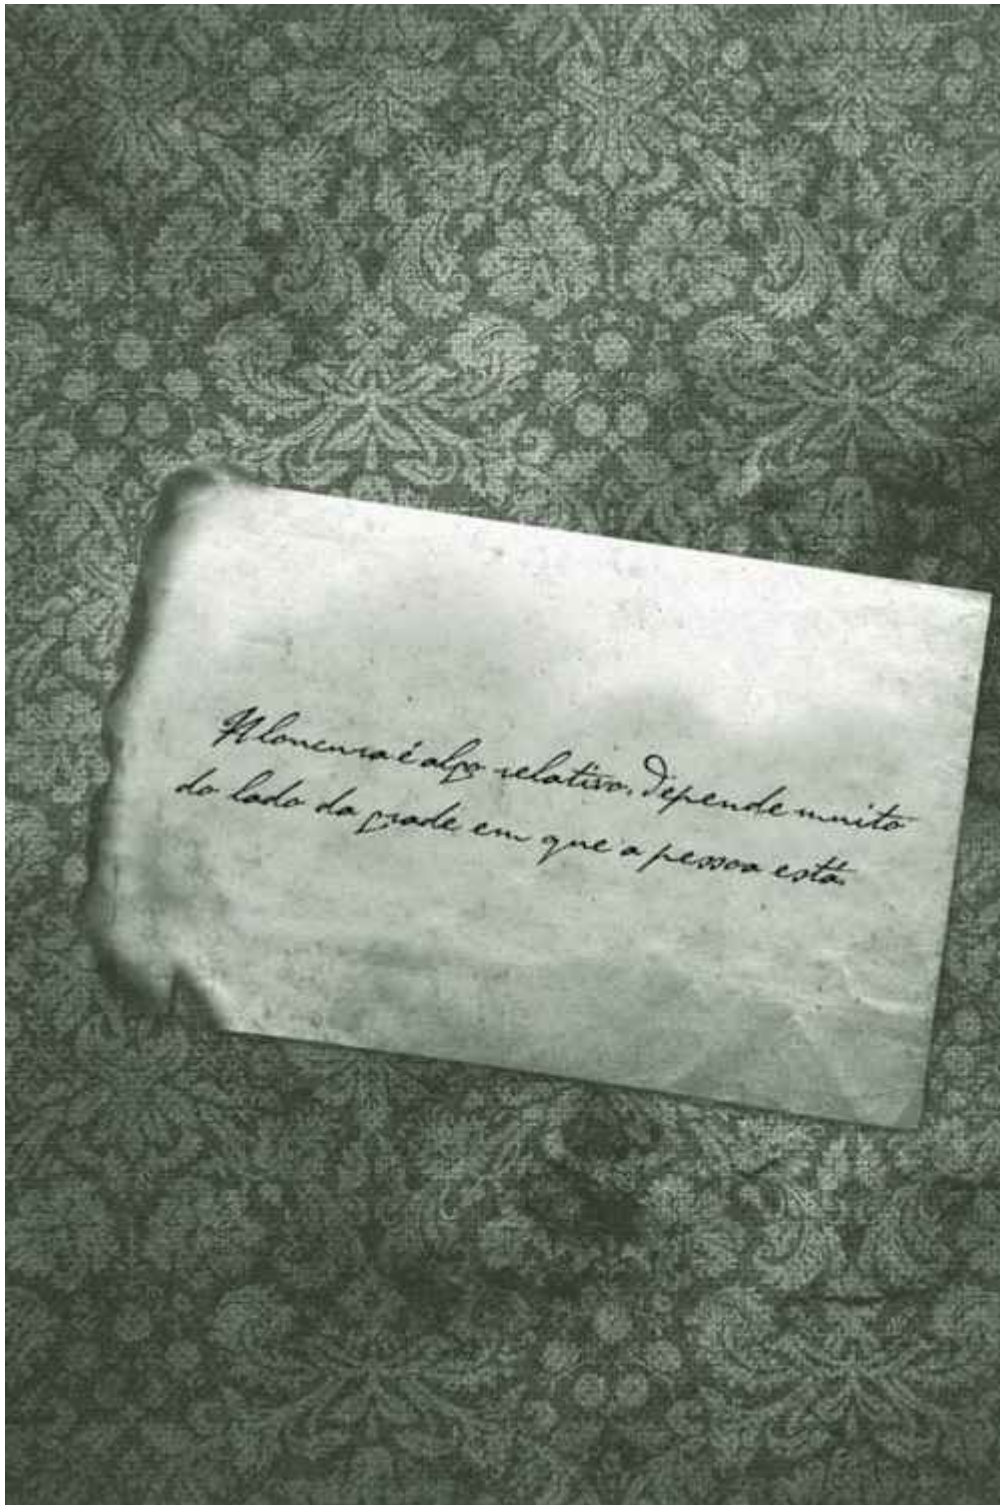 A loucura é algo relativo. Depende muito
do lado da grade em que a pessoa está.